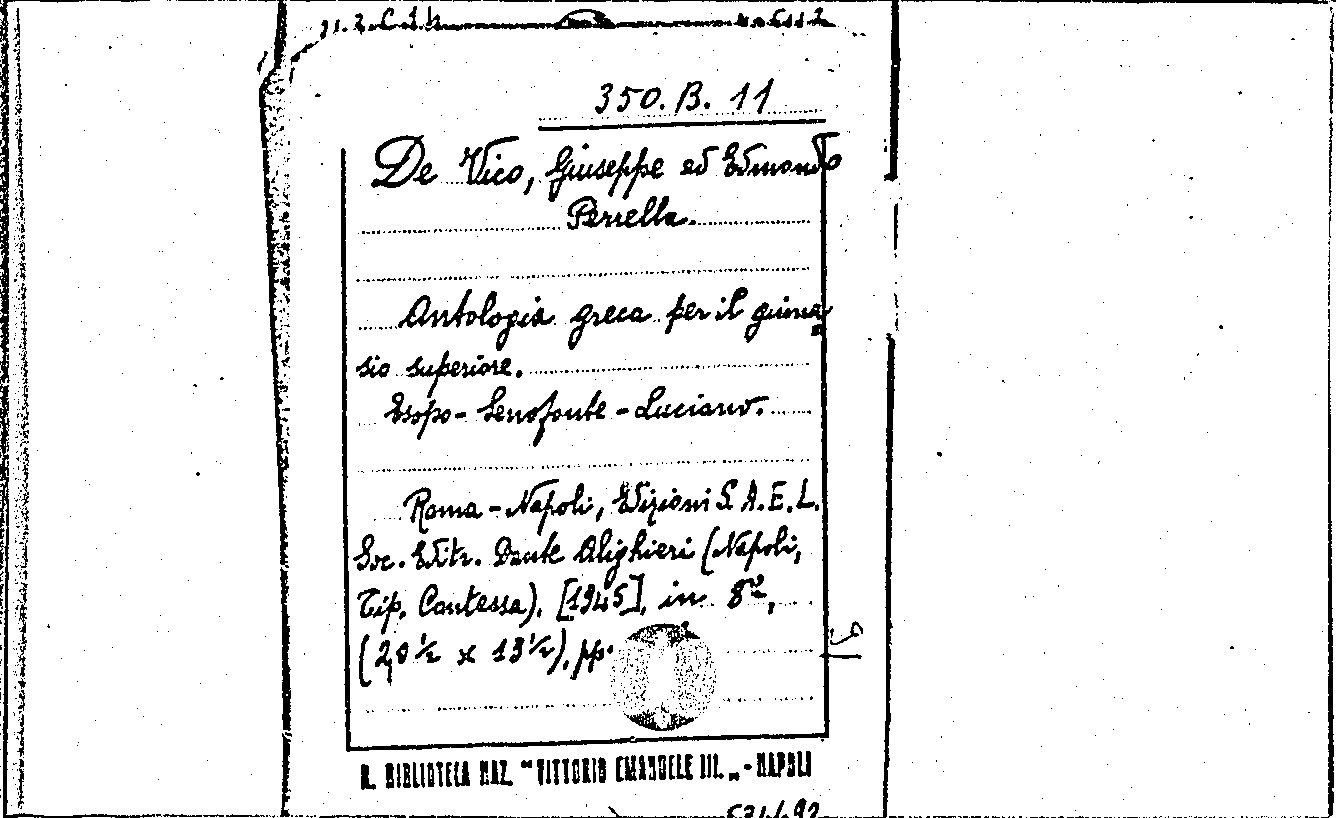 350. B. 11
De Vico, Giuseppe ed Edmondo
Perrella.
Antologia greca per il ginna-
sio superiore.
Esopo - Senofonte - Luciano.
Roma - Napoli, Edizioni S. A. E. L.
Soc. Editr. Dante Alighieri (Napoli,
Tip. Contessa), [1945], in 8º,
(20 ½ x 13 ½), pp.
R. BIBLIOTECA NAZ. "VITTORIO EMANUELE III. „ - NAPOLI